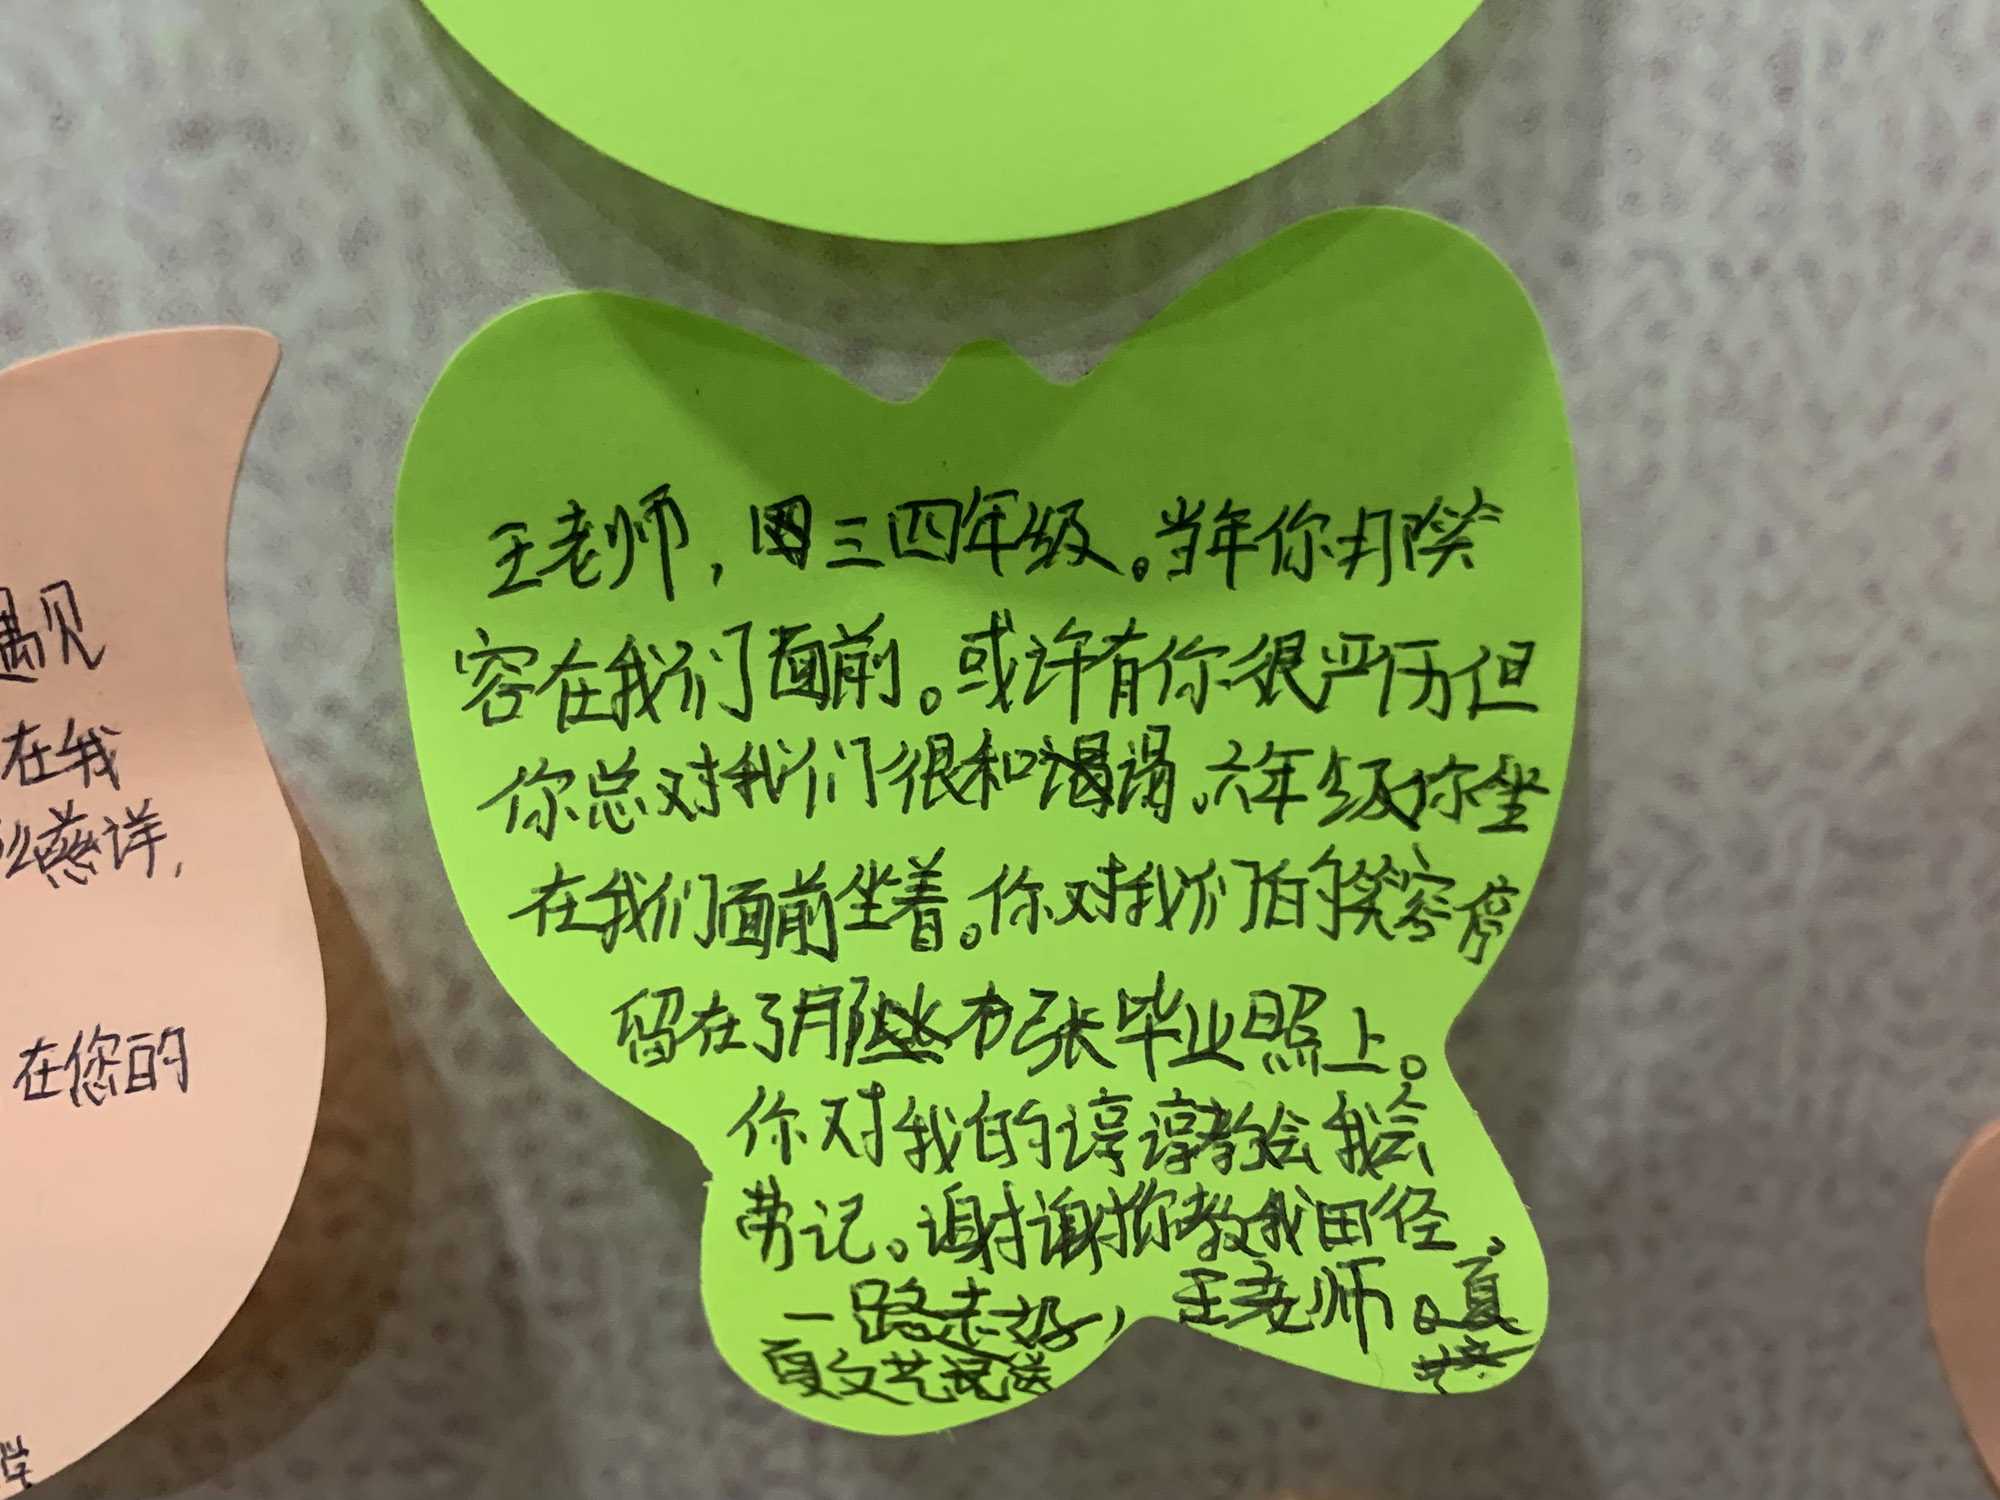 王老师，三四年级。当年你那笑
容在我们面前。或许有你很严厉但
你总对我们很和谒。六年级你坐
在我们面前坐着。你对我们的笑容停
留在了那张毕业照上。
你对我的谆谆教会我会
劳记。谢谢你教我田径。
一路走好，王老师。夏
夏文艺
遇见
在我
么慈详，
在您的